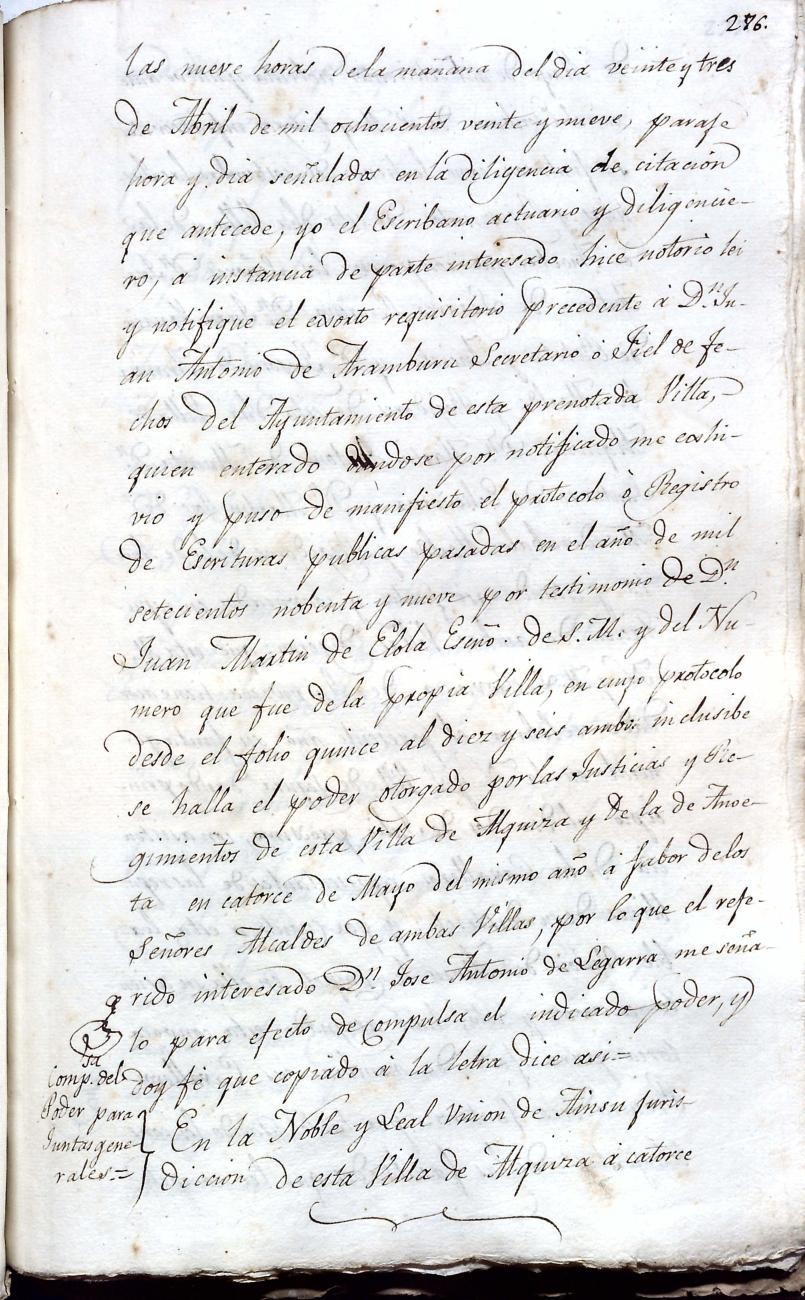 276.
las nueve horas dela mañana del dia veinte y tres
de Abril de mil ochocientos veinte y nueve, paraje
hora y dia señalados en la diligencia de citación
que antecede, yo el Escribano actuario y diligencie-
ro, á instancia de parte interesado hice notorio lei
y notifique el exorto requisitorio precedente á D.n Ju-
an Antonio de Aramburu Secretario ó Fiel de fe-
chos del Ayuntamiento de esta prenotada Villa,
quien enterado dandose por notificado me exhi-
vio y puso de manifiesto el protocolo ó Registro
de Escrituras publicas pasadas en el año de mil
setecientos nobenta y nueve por testimonio de D.n
Juan Martin de Elola Escño. de S. M. y del Nu-
mero que fue dela propia Villa, en cuyo protocolo
desde el folio quince al diez y seis ambos inclusibe
se halla el poder otorgado por las Justicias y Re-
gimientos de esta Villa de Alquiza y de la de Anoe-
ta en catorce de Mayo del mismo año á fabor delos
Señores Alcaldes de ambas Villas, por lo que el refe-
rido interesado D.n Jose Antonio de Legarra me seña-
lo para efecto de compulsa el indicado poder, y
doy fé que copiado á la letra dice asi=
Comp.sa del
Poder para
Juntas gene-
rales=
En la Noble y Leal Union de Ainsu juris-
diccion de esta Villa de Alquiza á catorce